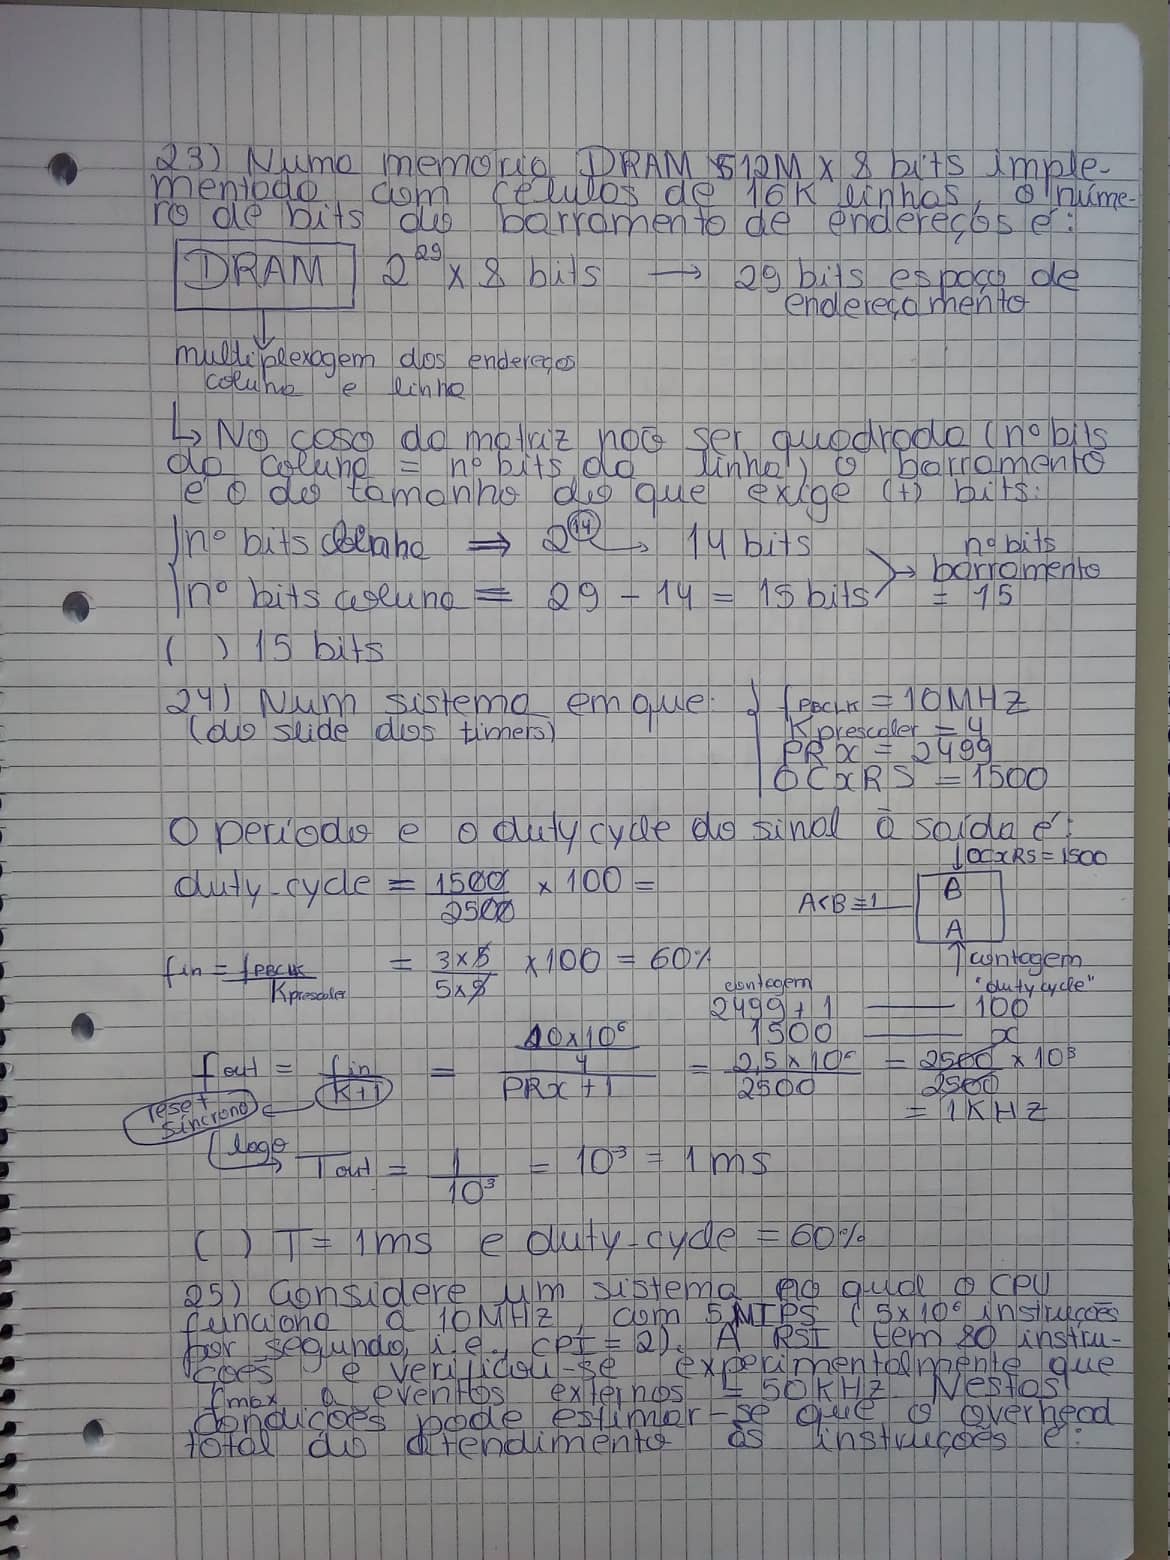 23) Numa memoria DRAM 512M x 8 bits imple-
mentada com células de 16K linhas, o núme-
ro de bits do barramento de endereços é:
DRAM 2^29 x 8 bits → 29 bits espaço de
endereçamento
multiplexagem dos endereços
coluna e linha
↳ No caso da matriz não ser quadrada (nº bits
da coluna = nº bits da linha) o barramento
é o do tamanho do que exige (+) bits:
nº bits linha ⇒ 2^14 → 14 bits
nº bits coluna = 29 - 14 = 15 bits
nº bits
barramento
= 15
( ) 15 bits
24) Num sistema em que:
(do slide dos timers)
fPBCLK = 10MHZ
Kprescaler = 4
PRx = 2499
OCxRS = 1500
O período e o duty cycle do sinal à saída é:
↓OCxRS = 1500
duty-cycle = 1500/2500 x 100 =
A<B = 1
B
A
↑contagem
fin = fPBCLK/Kprescaler
= 3x5/5x5 x100 = 60%
contagem "duty cycle"
2499 + 1 —— 100
1500 —— x
fout = fin/K+1 = 10x10^6/4/PRx + 1 = 2,5 x 10^6/2500 = 2500/2500 x 10^3
= 1KHZ
reset
síncrono
logo
→ Tout = 1/10^3 = 10^3 = 1 ms
( ) T = 1ms e duty-cycle = 60%
25) Considere um sistema no qual o CPU
funciona a 10MHZ, com 5MIPS (5x10^6 instruções
por segundo, i.e. CPI = 2). A RSI tem 20 instru-
ções e verificou-se experimentalmente que
fmax a eventos externos = 50KHZ. Nestas
condições pode estimar-se que o overhead
total do atendimento às instruções é: